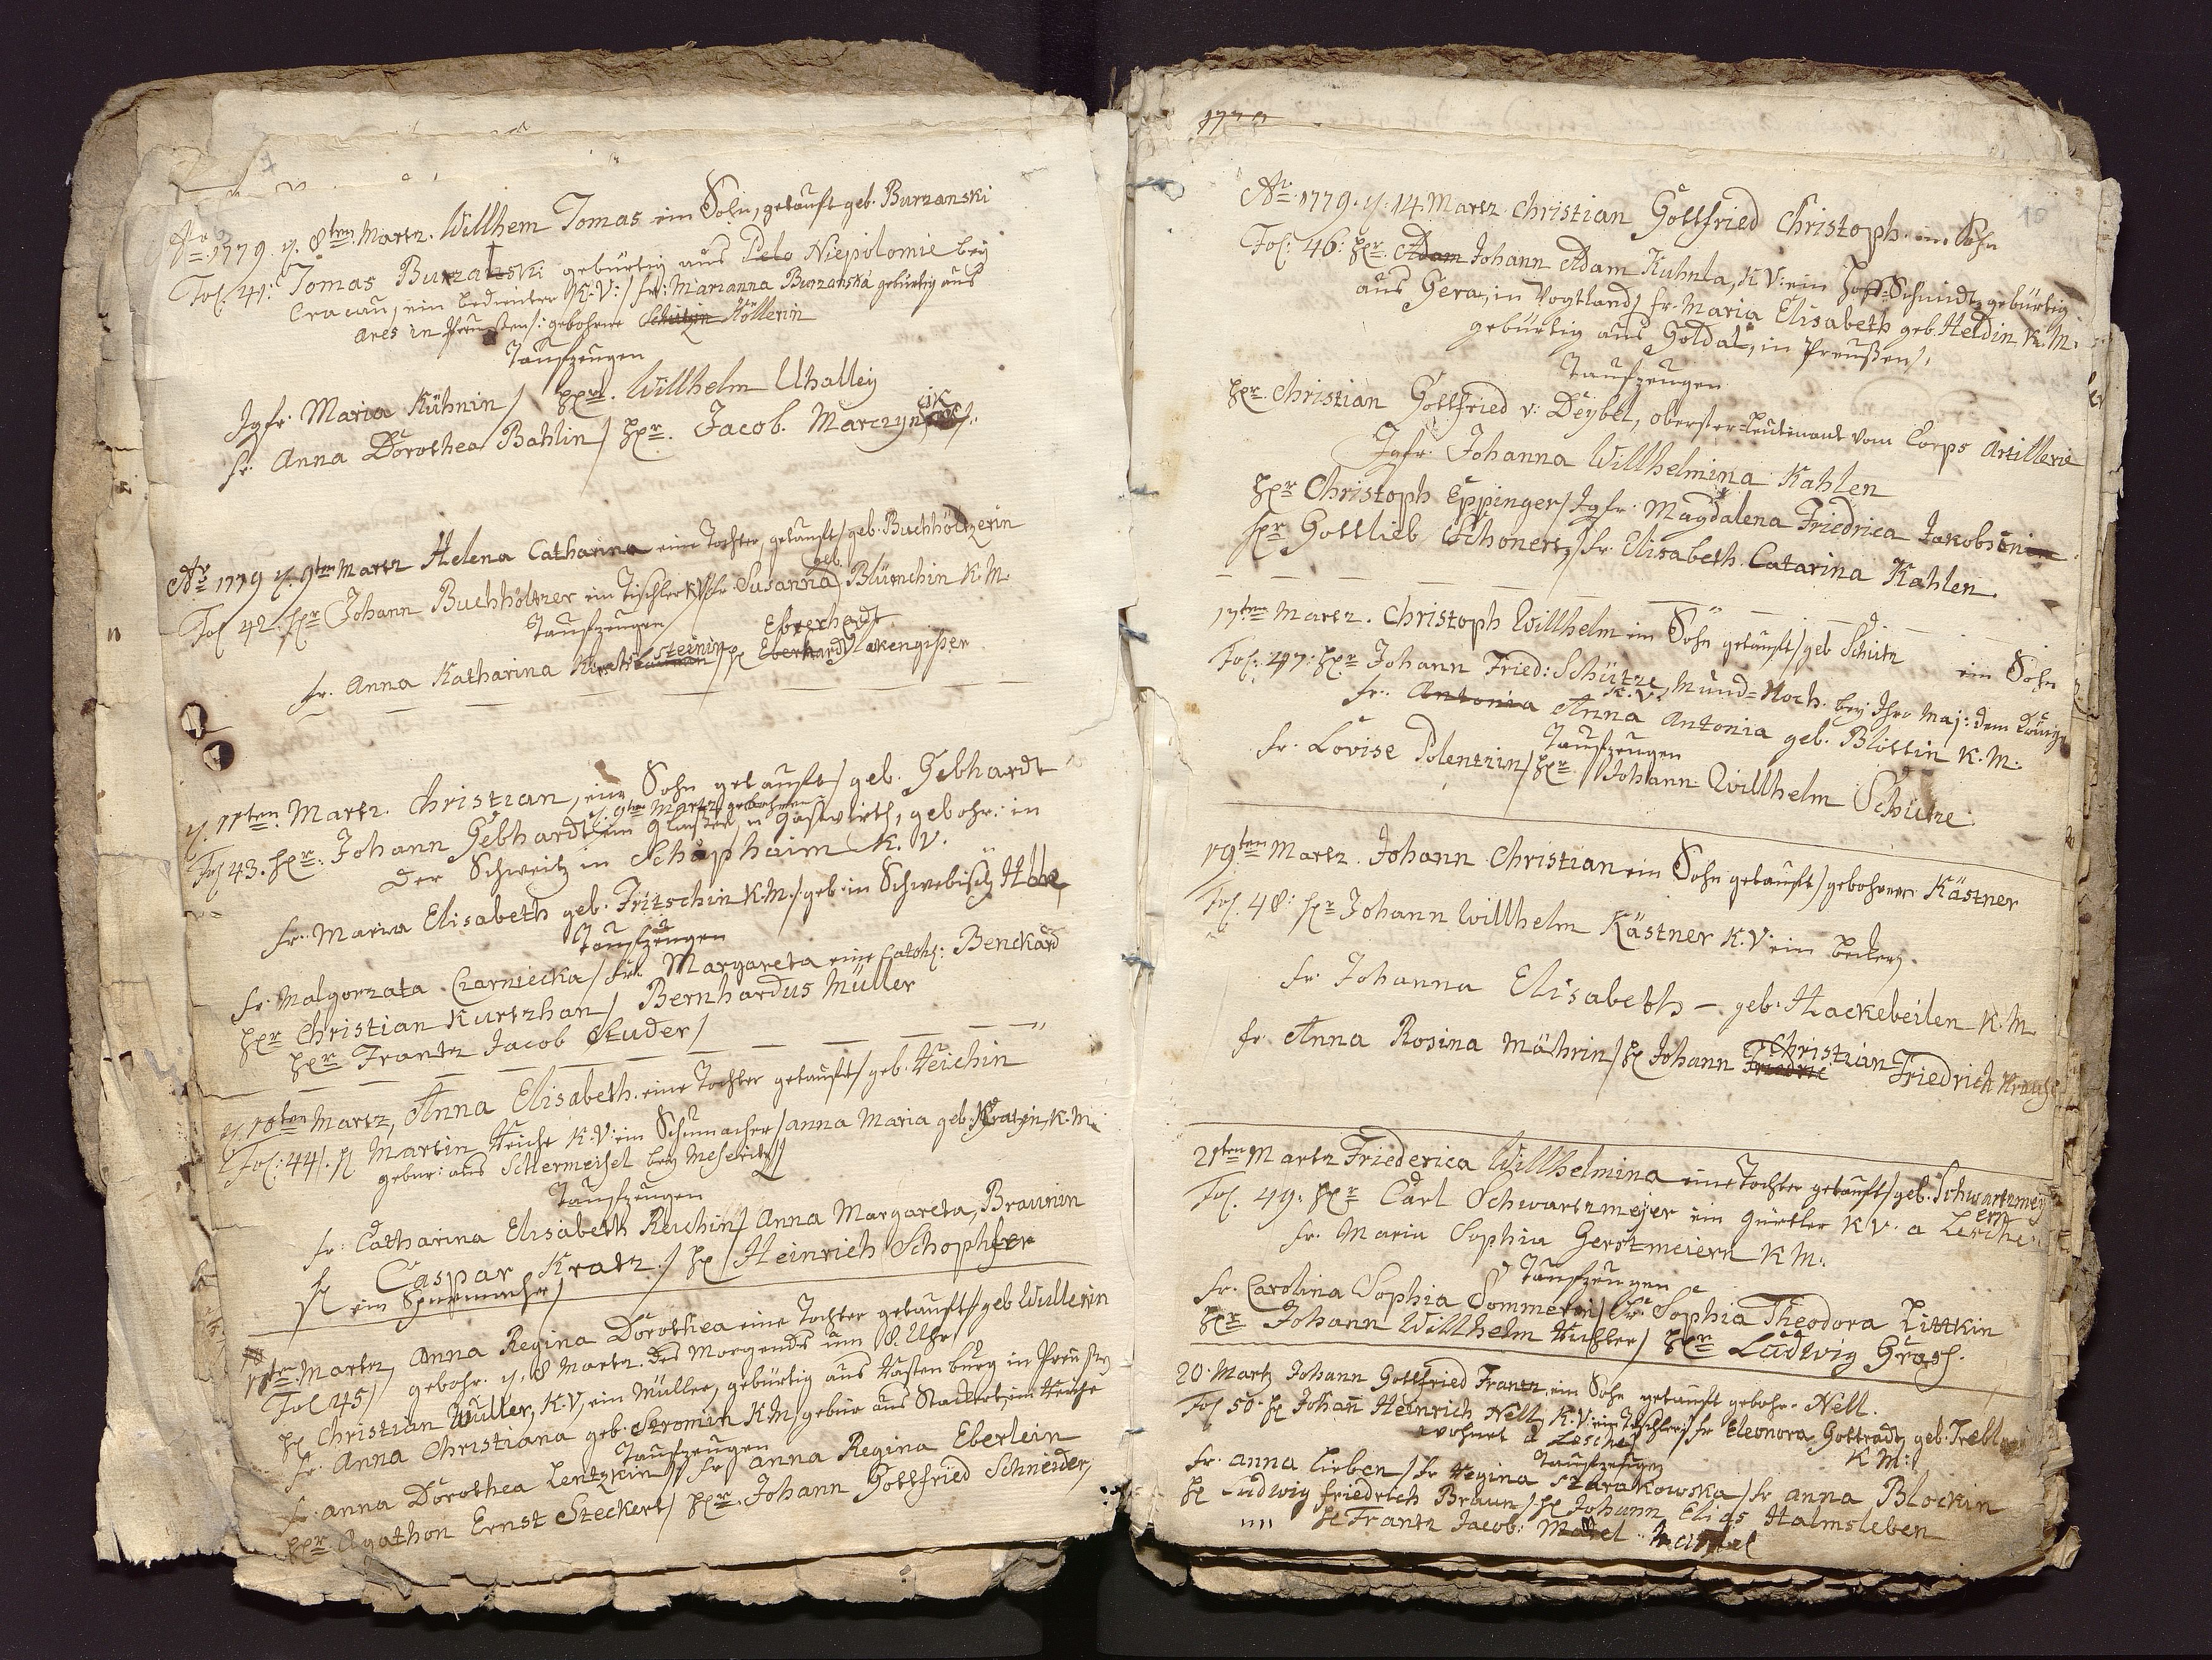 Ao 1779. d. 8ten Martz. Willhem Tomas ein Sohn, getauft geb. Burzanski
Fol. 41: Tomas Burzanski gebürtig aus Pelo Niepolomie bey
Cracau, ein bedienter K: V:/ fr: Marianna Burzanska gebürtig aus
Ares in Preussen/: gebohrne Schulzin Höllerin
Taufzeugen
Jgfr. Maria Kühnin/ Hr. Willhelm Uhalley
fr. Anna Dorothea Bahlin/ Hr. Jacob. Marczynsik
Ao 1779 d. 9ten Martz Helena Catharina eine Tochter, getauft/ geb. Buchhöltzerin
Fol 42. Hr Johann Buchhöltzer ein Tischler K V/ fr Susanna geb. Blümchin K. M.
Taufzeugen
fr. Anna Katharina steinin / H Eberhardt Eberhardt
d. 11ten Martz. Christian, ein Sohn getauft/ geb. Gebhardt
d. 9ten Martz gebohren
Fol 43. Hr. Johann Gebhardt, ein Glaser, u Gastwirth, gebohr: in
der Schweitz in Schaphaim K. V.
fr. Maria Elisabeth geb. Fritschin K. M./ geb in Schwebisch Hall
Taufzeugen
fr. Malgorzata Czarniecka/ fr. Margareta eine Cathol: Benckard
Hr Christian Kurtzhan/ Bernhardus Müller
Hr Frantz Jacob Studer/
d. 10ten Martz, Anna Elisabeth. eine Tochter getauft/ geb. Heichin
Fol: 44/. H Martin Heiche K. V: ein Schumacher/ anna Maria geb. Kratzin, K. M.
gebür: aus Schermeisel bey Meseritz/
Taufzeugen
fr: Catharina Elisabeth Reichin/ Anna Margareta, Braunin
H Caspar Kratz./ H/ Heinrich Schophfer
ein Schumacher/
11ten Martz, Anna Regina Dorothea eine Tochter getauft/ geb Wullerin
Fol 45/ gebohr. d. 8 Martz. des Morgends um 8 Uhr
H Christian Wuller, K. V, ein Müller, gebürtig aus Rastenburg in Preussen
fr. Anna Christiana geb. Stromin K M/ gebür aus
Taufzeugen
fr. anna Dorothea Lentzkin/ fr anna Regina Eberlein
Hr. Agathon Ernst Steckert/ Hr. Johann Gottfried Schneider/
10
Ao 1779. d. 14. Martz. Christian Gottfried Christoph. ein Sohn
Fol: 46: Hr. Adam Johann Adam Kuhnla, K V: ein Hoff-Schmidt, gebürtig
aus Gera, in Vogtland/ fr. Maria Elisabeth geb. Heldin K. M.
gebürtig aus Goldal, in Preußen/.
Taufzeugen
Hr. Christian Gottfried v: Deybel, oberster-Leutinant vom Corps Artillerie
Jgfr. Johanna Willhelmina Kahlen
Hr Christoph Eppinger/ Jgfr. Magdalena Friedrica Jakobsenin
Hr Gottlieb Schonertz/ fr. Elisabeth Catarina Kahlen.
17ten Martz. Christoph Willhelm ein Sohn getauft/ geb Schütz ein Sohn
Fol: 47: Hr Johann Fried: Schütze, K. V. Mund-Koch. bey Ihro Maj: dem König
fr. Antonia Anna Antonia geb. Blottin K. M:
Taufzeugen
fr. Lovise Polentzin/ Hr / Johann Willhelm Schutze.
19ten Martz. Johann Christian ein Sohn getauft/ gebohrner Kästner
Fol. 48: Hr Johann Willhelm Kästner K. V: ein becker/.
fr. Johanna Elisabeth - geb. Hackebeilen K. M
fr Anna Rosina Mährin/ H Johann Friedric Christian Friedrich Krause
21ten Martz Friederica Willhelmina eine Tochter getauft/ geb. Schwartzmeyern
Fol. 49. Hr Carl Schwartzmejer ein Gürtler K V. a Lesche
fr. Maria Sophia Gerstmeiern K M.
Taufzeugen
fr. Carolina Sophia Sommerin/ fr. Sophia Theodora Littkin
Hr Johann Willhelm Richter/ Hr Ludwig Gras/.
20. Martz Johann Gottfried Frantz, ein Sohn getauft gebohr. Nell.
Fol 50. H Johan Heinrich Nell, K: V: ein Tischler/ fr Eleonora Gottradt, geb.
wohnet a Lesche/ K M:/
Taufzeugen
fr. anna Lieben/ fr Regina Szarakowska/ fr anna Blockin
H Ludwig Friedrich Braun/ H Johann Elias Halmsleben
H Frantz Jacob: